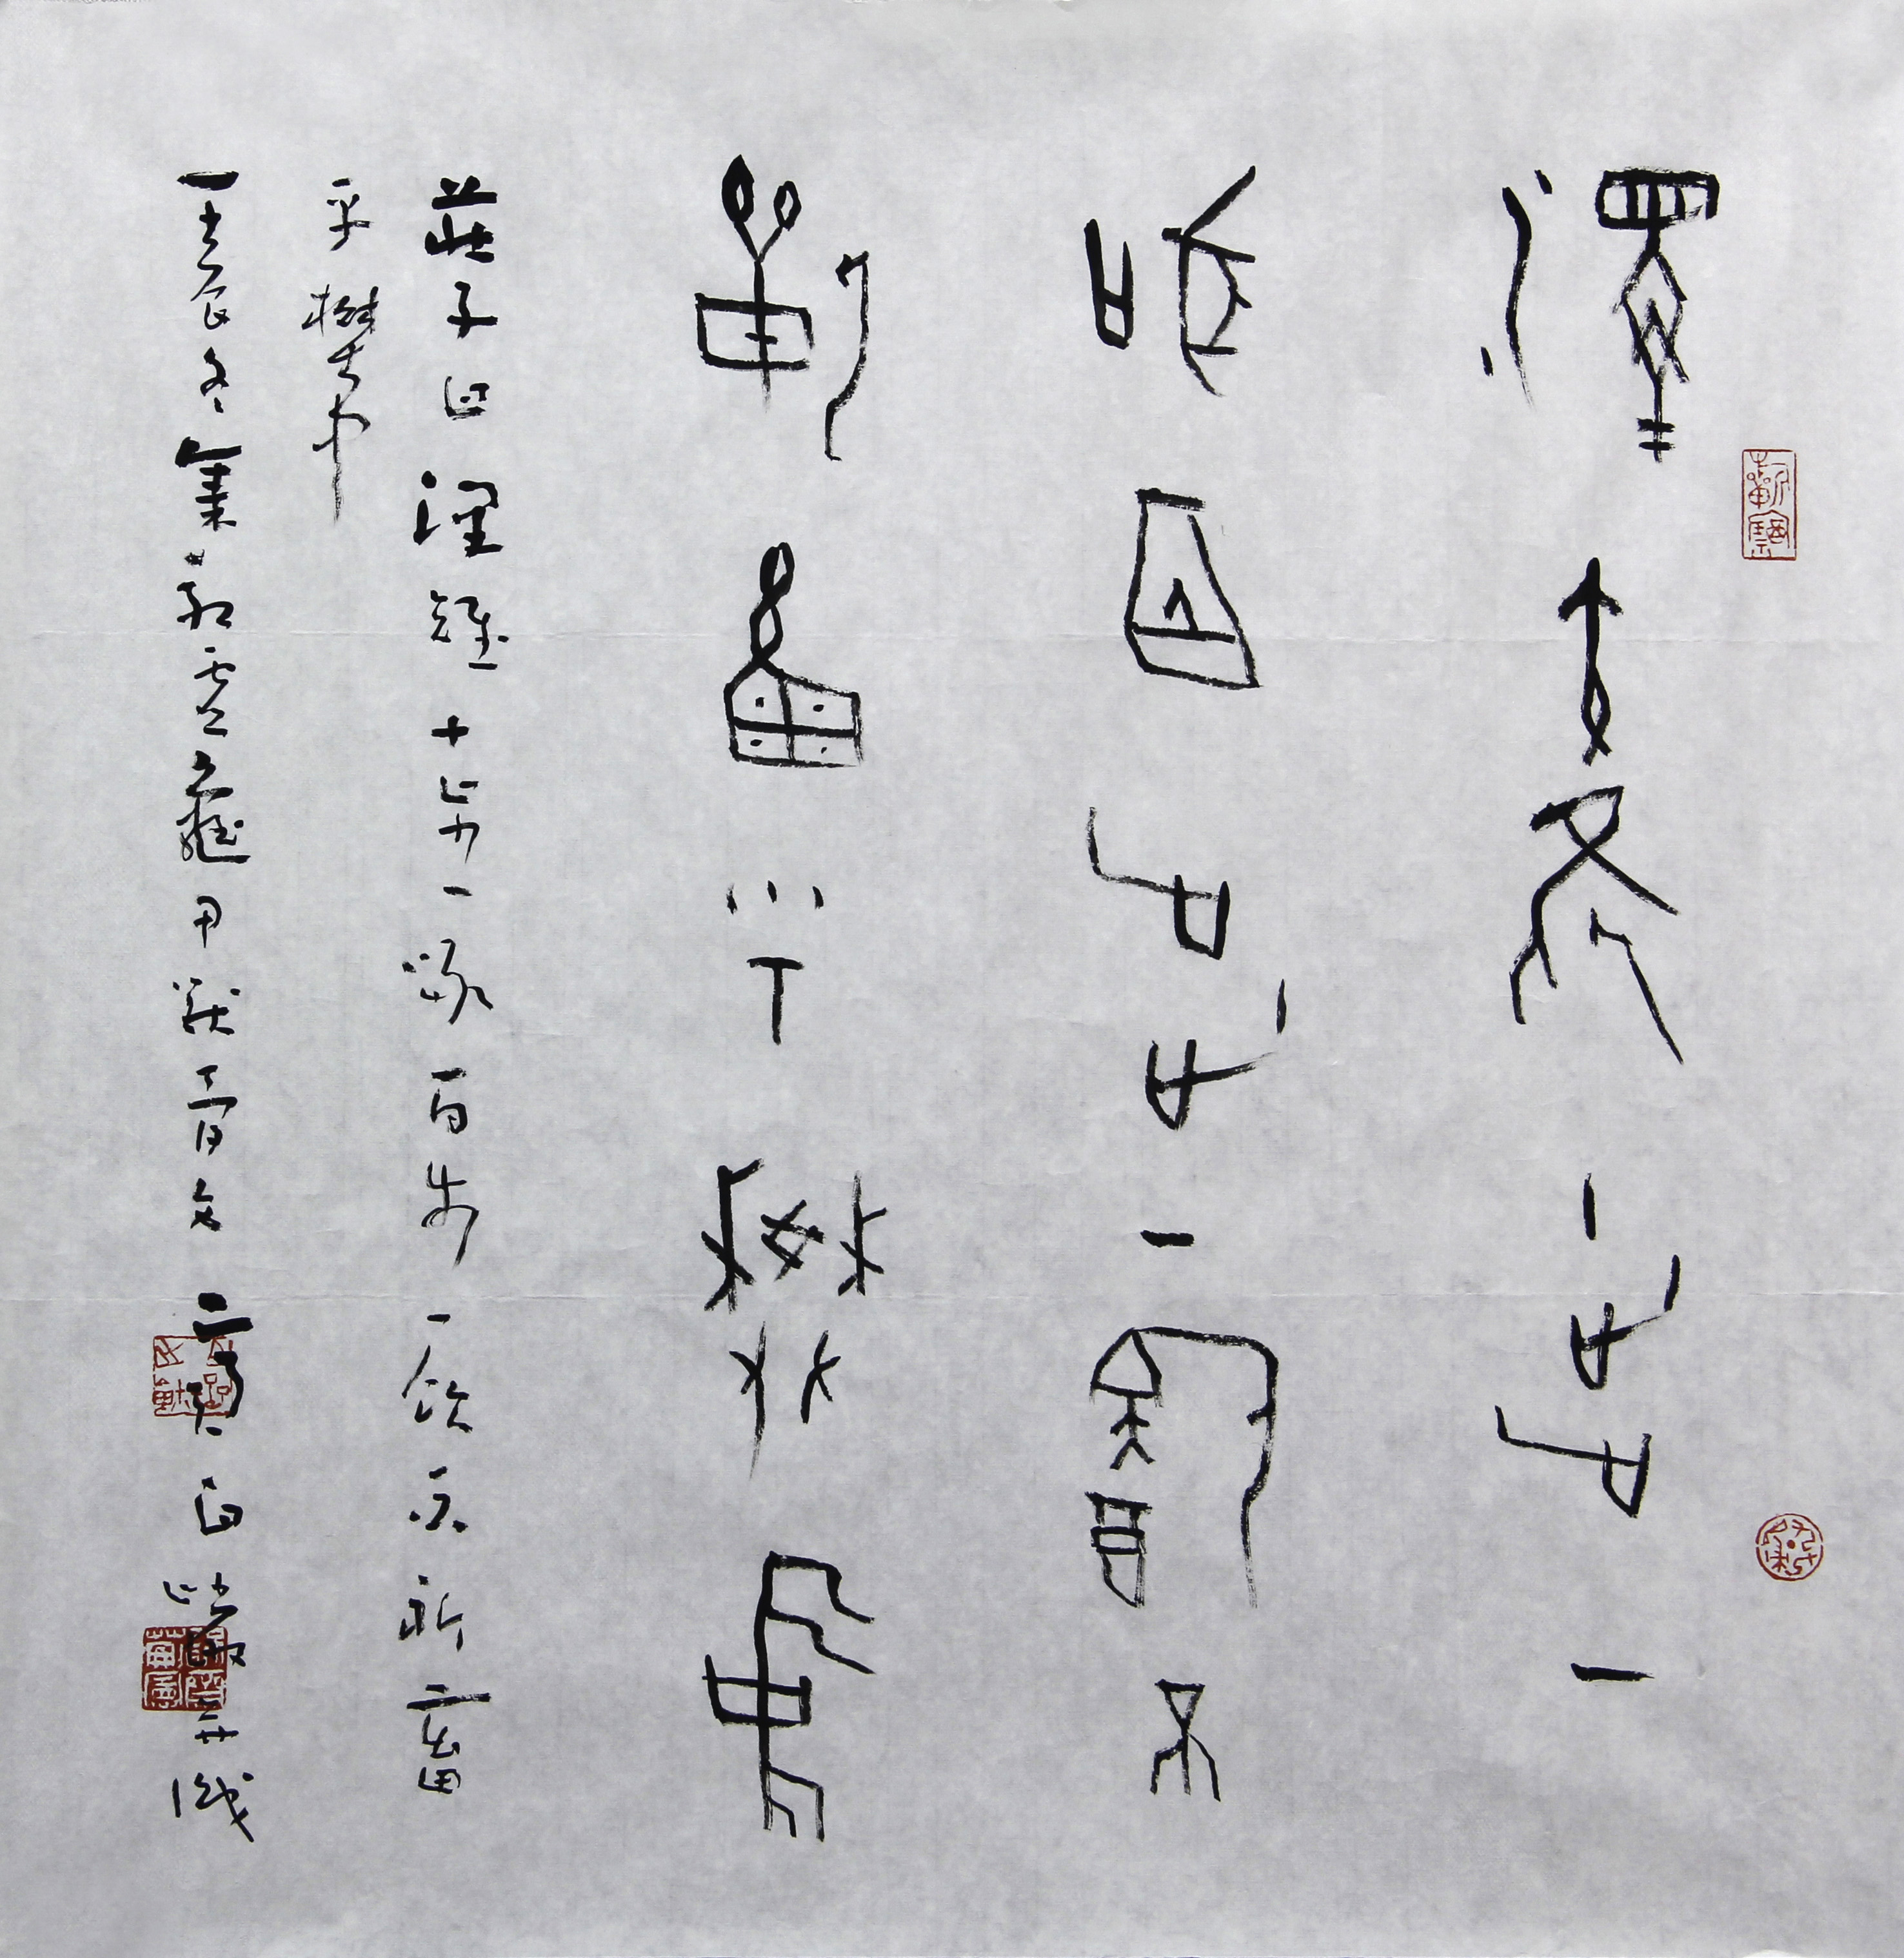 澤雉十步一
啄百步一飲不
蘄畜乎樊中
莊子曰澤雉十步一啄百步一飲不蘄畜
乎樊中
壬辰冬集殷虛之龜甲獸骨文